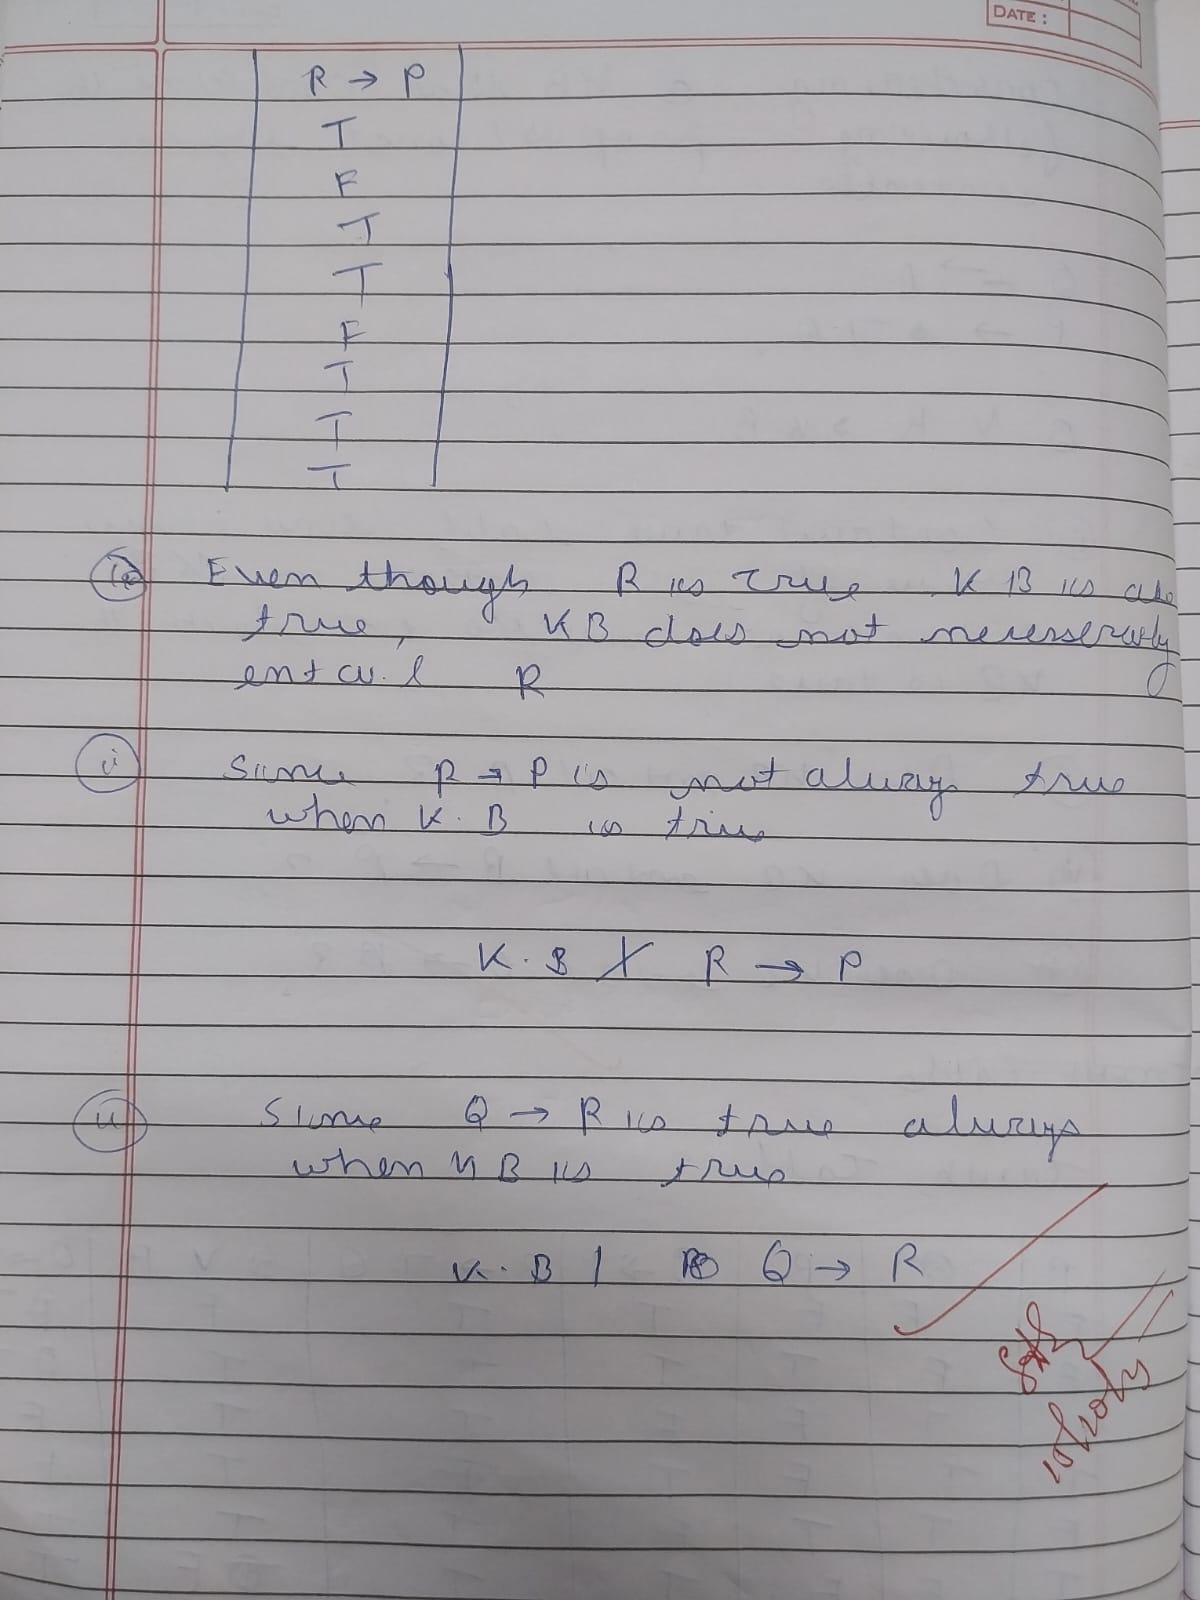 DATE :
R → P
T
F
T
T
F
T
T
T
Even though R is True KB is also
true, KB does not necesserarly
entail R
ii Since R → P is not always true
when K.B is true
K.B ⊬ R → P
iii Since Q → R is true always
when KB is true
K.B | Q → R